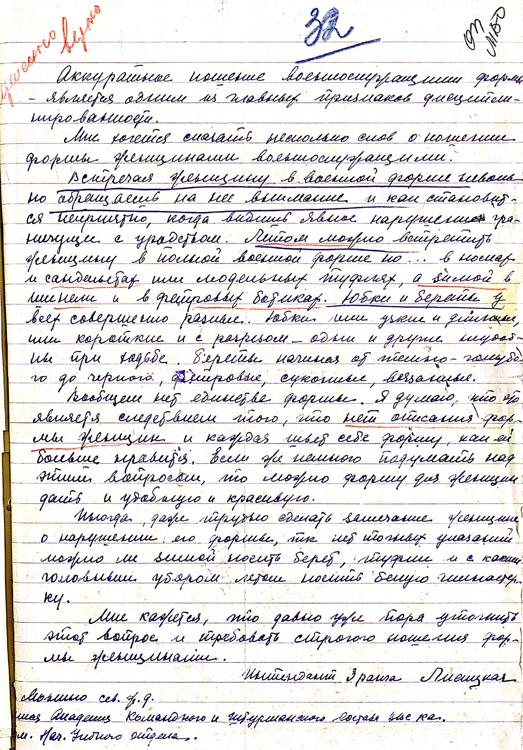 32
верно
Аккуратное ношение военнослужащими формы
- является одним из главных признаков дисципли-
нированности.
Мне хочется сказать несколько слов о ношении
формы женщинами военнослужащими.
Встречая женщину в военной форме неволь
но обращаешь на нее внимание и как становит-
ся неприятно, когда видишь явное нарушение гра-
ничущие с уродством. Летом можно встретить
женщину в полной военной форме но... в носках
и сандалетах или модельных туфлях, а зимой в
шинели и в фетровых ботиках. Юбки и береты у
всех совершенно разные. Юбки или узкие и длинные,
или короткие и с разрезом - одни и другие неудоб-
ны при ходьбе. Береты начиная от темно-голубо-
го до черного, фетровые, суконные, вязанные.
Вообщем нет единства формы. Я думаю, что это
является следствием того, что нет описания фор-
мы женщин и каждая шьет себе форму, как ей
больше нравится. Если же немного подумать над
этим вопросом, то можно форму для женщин
дать и удобную и красивую.
Иногда даже трудно сделать замечание женщине
о нарушении его формы, т.к. нет точных указаний
можно ли зимой носить берет, туфли и с каким
головным убором летом носить белую гимнастер-
ку.
Мне кажется, что давно уже пора уточнить
этот вопрос и требовать строгого ношения фор-
мы женщинами.
Интендант 3 ранга Лисицкая
Академия Командного и Штурманского состава ВВС КА.
Нач. Учебного отдела.